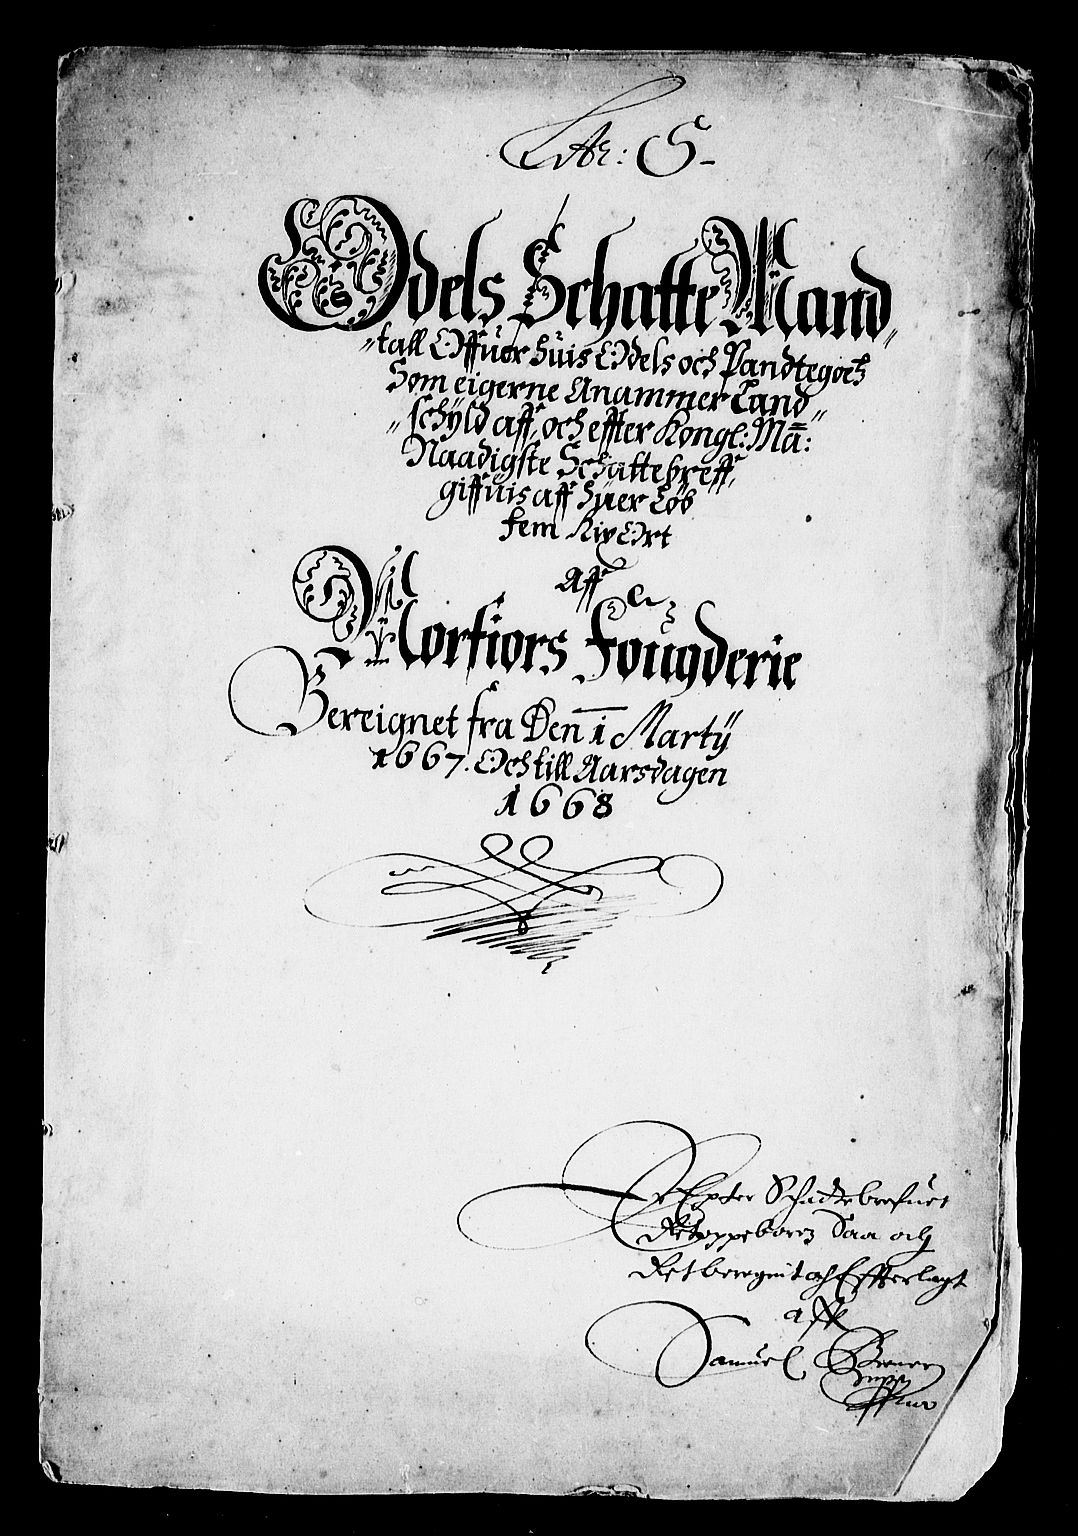 Ltr: S
Odels Schatte Mand„
„tall Offuer huis Odels och Pandtegoeh
Som eigerne Anammer Land„
„schÿld aff, och effter Kongl: Ma:
Naadigste Schattebreff,
giffuis aff huer Løb
fem Rix Ort
Aff
Morfiors Fougderie
Bereignet fra Den 1 Martÿ
1667. Och till Aarsdagen
1668
Epter Schattebrefuet
Saa och
Ret beregnit och Effterlagt
aff
Samuel